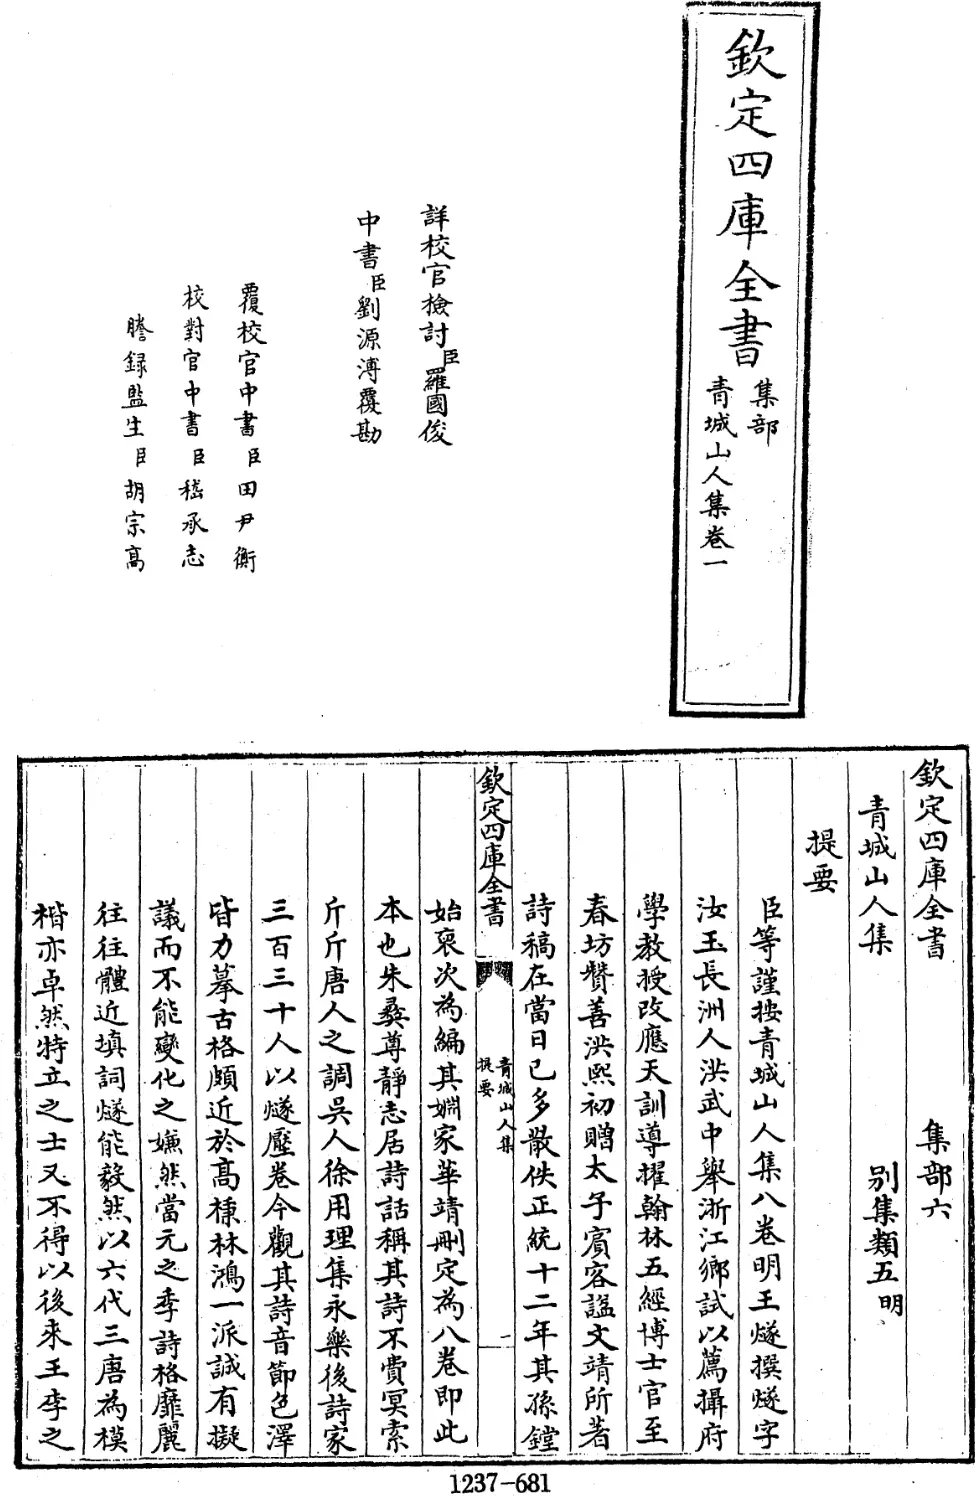 欽定四庫全書
集部
青城山人集卷一
詳校官檢討臣羅國俊
中書臣劉源溥覆勘
覆校官中書臣田尹衡
校對官中書臣嵇承志
謄錄監生臣胡宗高
欽定四庫全書 集部六
青城山人集 別集類五明
提要
臣等謹按青城山人集八卷明王燧撰燧字
汝玉長洲人洪武中舉浙江鄉試以薦攝府
學教授改應天訓導擢翰林五經博士官至
春坊贊善洪熙初贈太子賓客諡文靖所著
詩稿在當日已多散佚正統十二年其孫鏜
欽定四庫全書
青城山人集
提要
一
始裒次為編其婣家華靖刪定為八卷即此
本也朱彝尊靜志居詩話稱其詩不費冥索
斤斤唐人之調吳人徐用理集永樂後詩家
三百三十人以燧壓卷今觀其詩音節色澤
皆力摹古格頗近於高棅林鴻一派誠有擬
議而不能變化之嫌然當元之季詩格靡麗
往往體近填詞燧能毅然以六代三唐為模
楷亦卓然特立之士又不得以後來王李之
1237-681